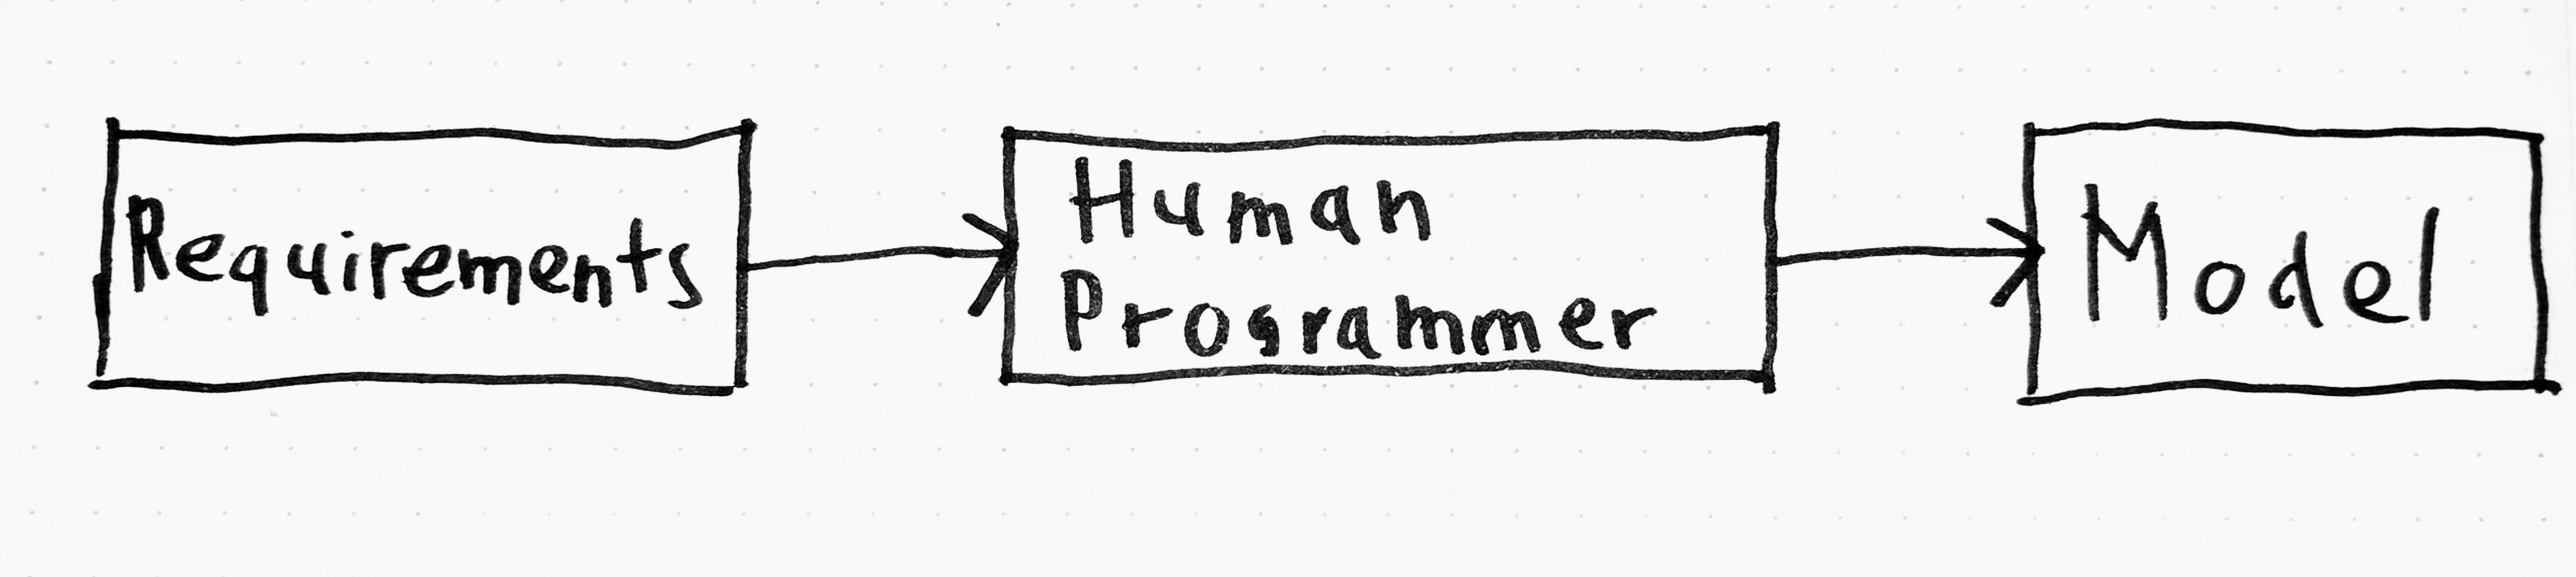 Requirements
Human
Programmer
Model